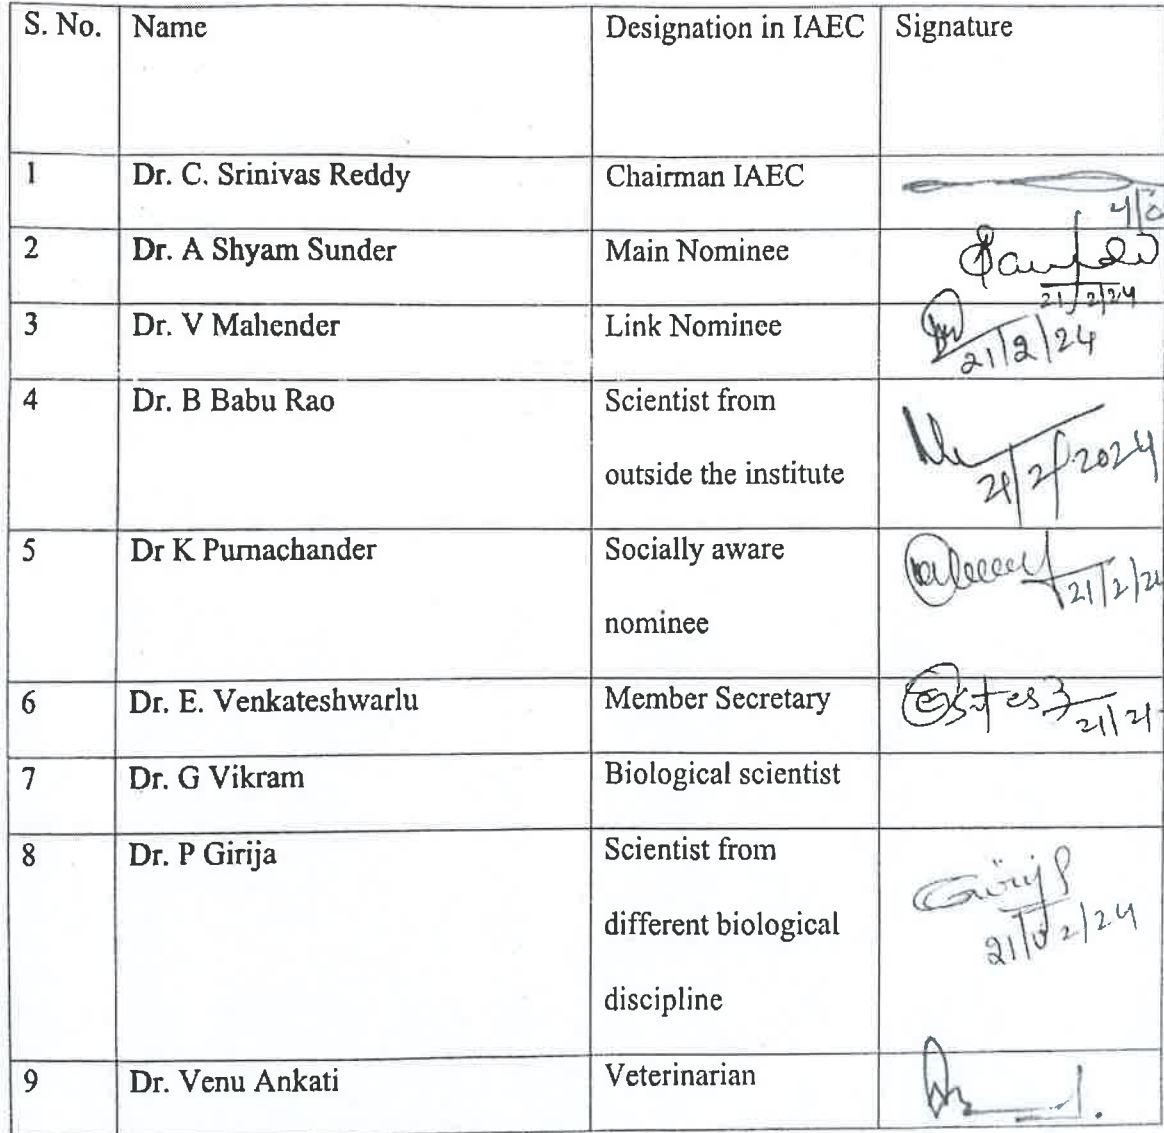 S. No. Name Designation in IAEC Signature
1 Dr. C. Srinivas Reddy Chairman IAEC
2 Dr. A Shyam Sunder Main Nominee
21/2/24
3 Dr. V Mahender Link Nominee
21/2/24
4 Dr. B Babu Rao Scientist from
outside the institute
21/2/2024
5 Dr K Purnachander Socially aware
21/2/24
nominee
6 Dr. E. Venkateshwarlu Member Secretary
21/2/
7 Dr. G Vikram Biological scientist
8 Dr. P Girija Scientist from
different biological
21/02/24
discipline
9 Dr. Venu Ankati Veterinarian